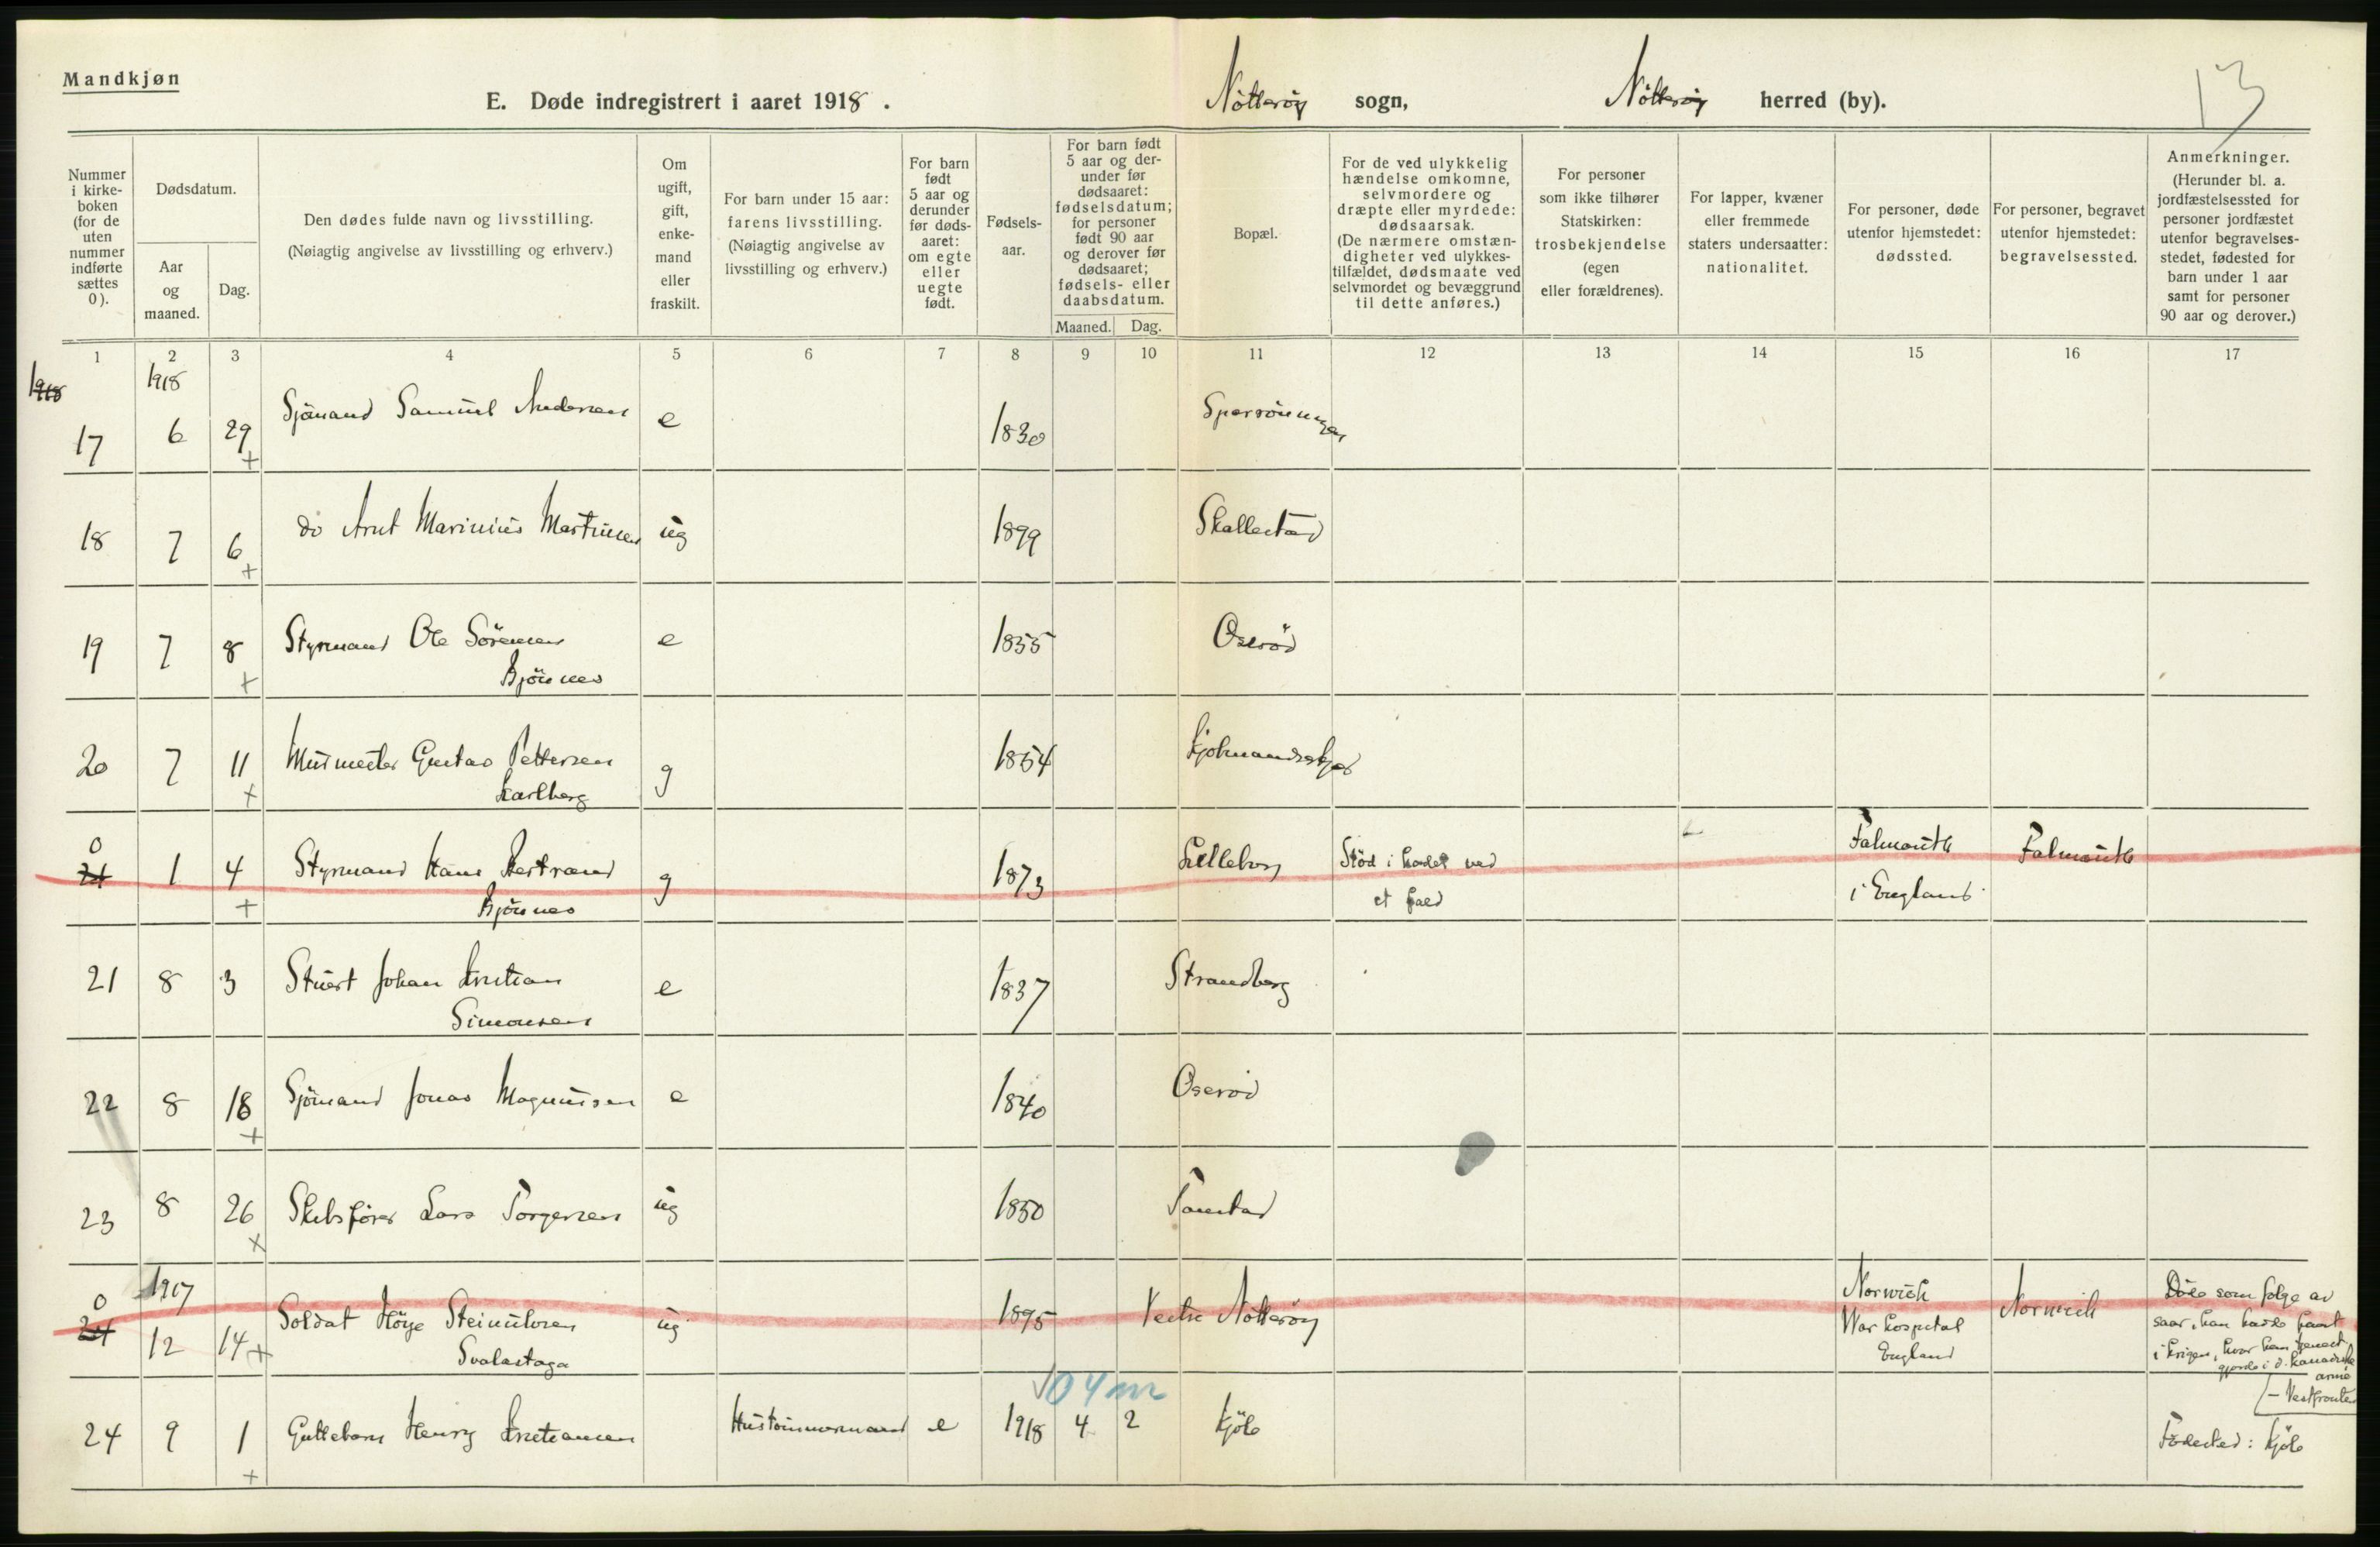 Mandkjøn
E. Døde indregistrert i aaret 1918.
Nötteröy sogn, Nötteröy herred (by).
13
Nummer i kirke-boken (for de uten nummer indførte sættes 0).
Dødsdatum.
Aar og maaned.
Dag.
Den dødes fulde navn og livsstilling.
(Nøiagtig angivelse av livsstilling og erhverv.)
Om ugift, gift, enke-mand eller fraskilt.
For barn under 15 aar: farens livsstilling.
(Nøiagtig angivelse av livsstilling og erhverv.)
For barn født 5 aar og derunder før døds-aaret: om egte eller uegte født.
Fødsels-aar.
For barn født 5 aar og der-under før dødsaaret: fødselsdatum; for personer født 90 aar og derover før dødsaaret; fødsels- eller daabsdatum.
Maaned. Dag.
Bopæl.
For de ved ulykkelig hændelse omkomne, selvmordere og dræpte eller myrdede: dødsaarsak.
(De nærmere omstæn-digheter ved ulykkes-tilfældet, dødsmaate ved selvmordet og bevæggrund til dette anføres.)
For personer som ikke tilhører Statskirken: trosbekjendelse (egen eller forældrenes).
For lapper, kvæner eller fremmede staters undersaatter: nationalitet.
For personer, døde utenfor hjemstedet: dødssted.
For personer, begravet utenfor hjemstedet: begravelsessted.
Anmerkninger.
(Herunder bl. a. jordfæstelsessted for personer jordfæstet utenfor begravelses-stedet, fødested for barn under 1 aar samt for personer 90 aar og derover.)
1 2 3 4 5 6 7 8 9 10 11 12 13 14 15 16 17
1918 1918
17 6 29 Sjömand Samuel Andersen e 1830
+
18 7 6 do Arnt Marinius Martinsen ug 1899 Skallestad
+
19 7 8 Styrmand Ole Sörensen e 1855 Oseröd
+ Bjönnes
20 7 11 Murmester Gustav Pettersen g 1854 Kjolmandskjær
+ Karlberg
0
21 1 4 Styrmand Hans Bertrand g 1873 Lilleborg Stöd i hodet ved Falmouth Falmouth
+ Bjönnes et fald i England
21 8 3 Stuert Johan Kristian e 1837 Strandberg
Simonsen
22 8 18 Sjömand Jonas Magnussen e 1840 Oseröd
+
23 8 26 Skibsförer Lars Torgersen ug 1850
x
0 1917
24 12 14 + Soldat Höye Steinulvsen ug 1895 Vestre Nötteröy Norwich Norwich Döde som følge av
Svalastoga War Hospital saar, han hadde faat
England i krigen, hvor han tjeneste
gjorde i d. kanadiske
arme
- Vestfronten
04 m
24 9 1 Guttebarn Henry Kristiansen Hustömmermand e 1918 4 2 Kjöle Födested: Kjöle
+